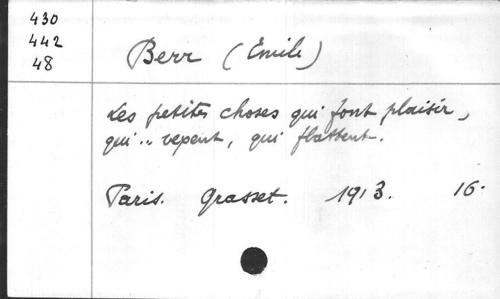 430
442
48
Berr (Emile)
Les petites choses qui font plaisir,
qui .. vexent, qui flattent.
Paris. Grasset. 1913. 16.